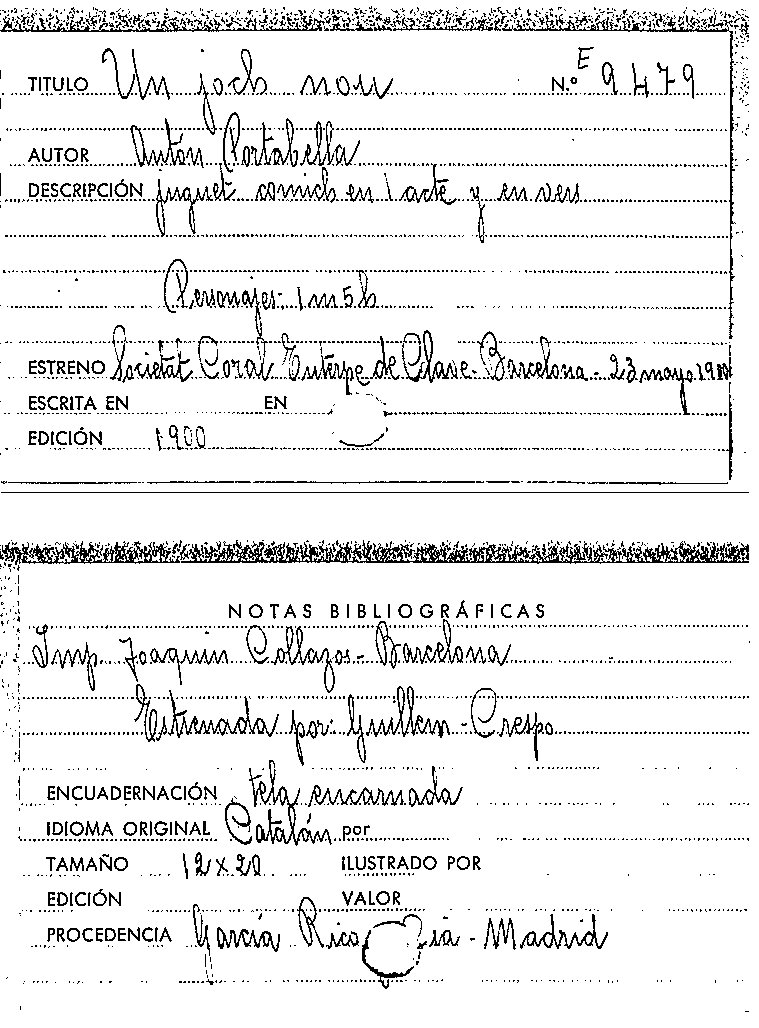 TITULO Un joch nou N.º E 9479
AUTOR Antón Portabella
DESCRIPCIÓN juguet comich en 1 acte y en vers
Personajes: 1 m 5 h
ESTRENO Societat Coral Euterpe de Clave - Barcelona - 23 mayo 1900
ESCRITA EN EN
EDICIÓN 1900
NOTAS BIBLIOGRÁFICAS
Imp. Joaquin Collazos - Barcelona
Estrenada por: Guillem - Crespo
ENCUADERNACIÓN tela encarnada
IDIOMA ORIGINAL Catalán por
TAMAÑO 12 x 20 ILUSTRADO POR
EDICIÓN VALOR
PROCEDENCIA García Rico - Madrid